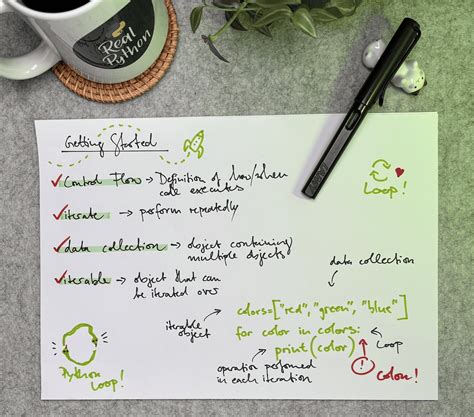 Real
Python
Getting Started
Control Flow → Definition of how/when
code executes
iterate → perform repeatedly
data collection → object containing
multiple objects
iterable → object that can
be iterated over
Loop!
data collection
colors=["red", "green", "blue"]
iterable
object
for color in colors:
print(color)
Loop
operation performed
in each iteration
!
Colon!
Python
Loop!